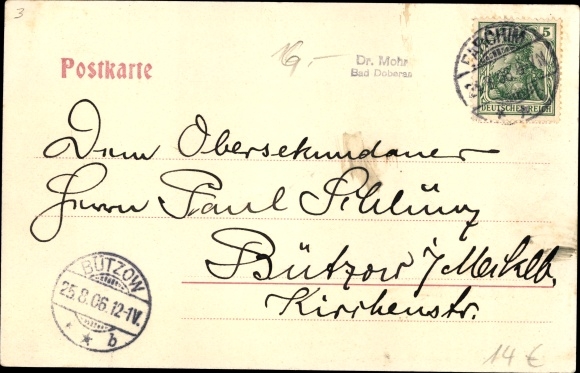 3
16,-
Dr. Mohr
Bad Doberan
Postkarte
PARCHIM
5
DEUTSCHES REICH
Dem Obersekundaner
Herrn Paul Schlüng
Bützow i/Meklb.
Kirchenstr.
BÜTZOW
25.8.06.12-1V.
* * b
14 €